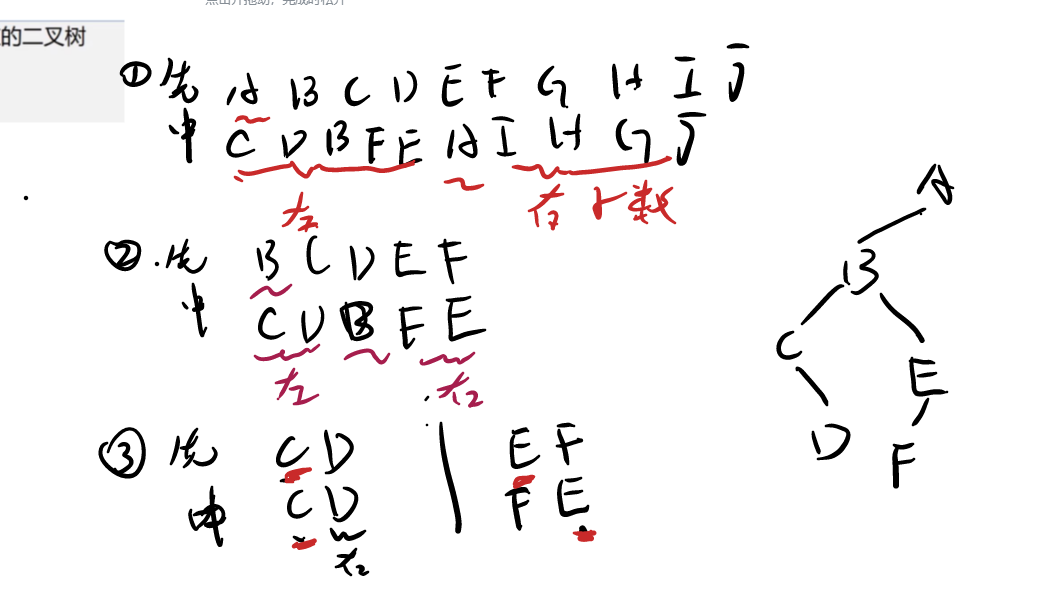 点击并拖动，完成时松开
的二叉树
① 先 A B C D E F G H I J
中 C D B F E A I H G J
左 右子数
② 先 B C D E F
中 C D B F E
左 右
③ 先 C D E F
中 C D F E
右
A
B
C E
D F